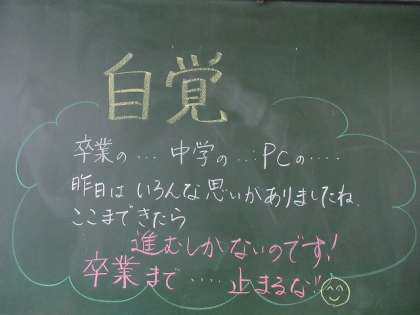 自覚
卒業の… 中学の… PCの‥‥
昨日は いろんな思いがありましたね、
ここまできたら
進むしかないのです!
卒業まで ‥‥ 止まるな!!